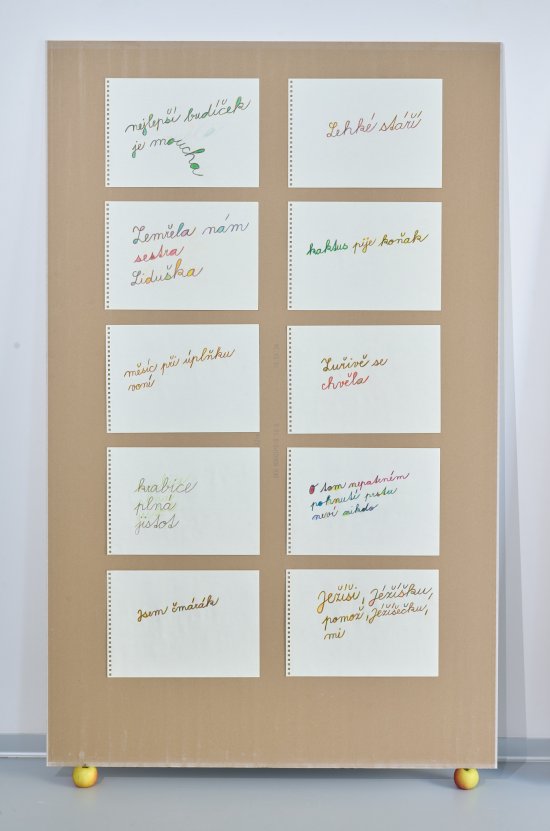 nejlepší budíček
je moucha
Lehké stáří
Zemřela nám
sestra
Liduška
kaktus pije koňak
měsíc při úplňku
voní
Zuřivě se
chvěla
krabice
plná
jistot
O tom nepatrném
pohnutí prstu
neví nikdo
Jsem čmárák
Ježíši, Ježíšku,
pomož, Ježíšečku,
mi